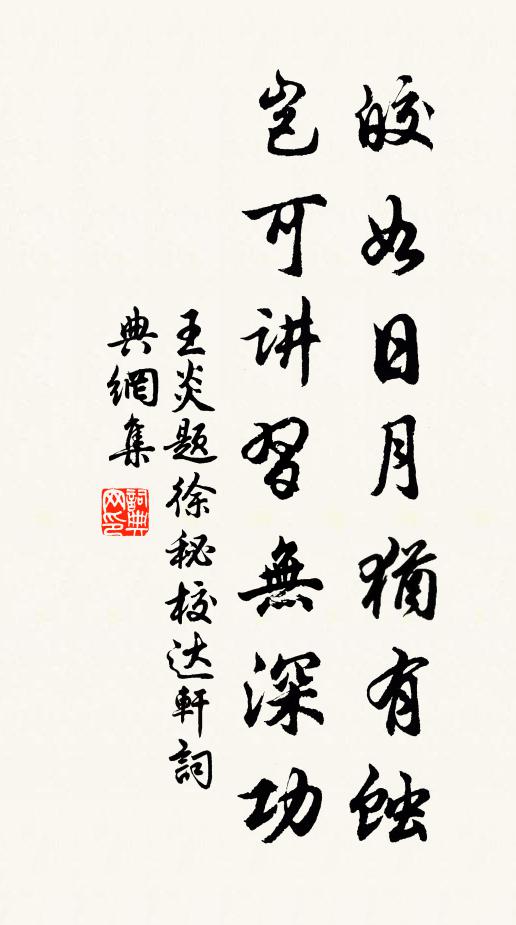 皎如日月猶有蝕
岂可讲習無深功
王炎题徐秘校达軒詞
典網集
詞典网印